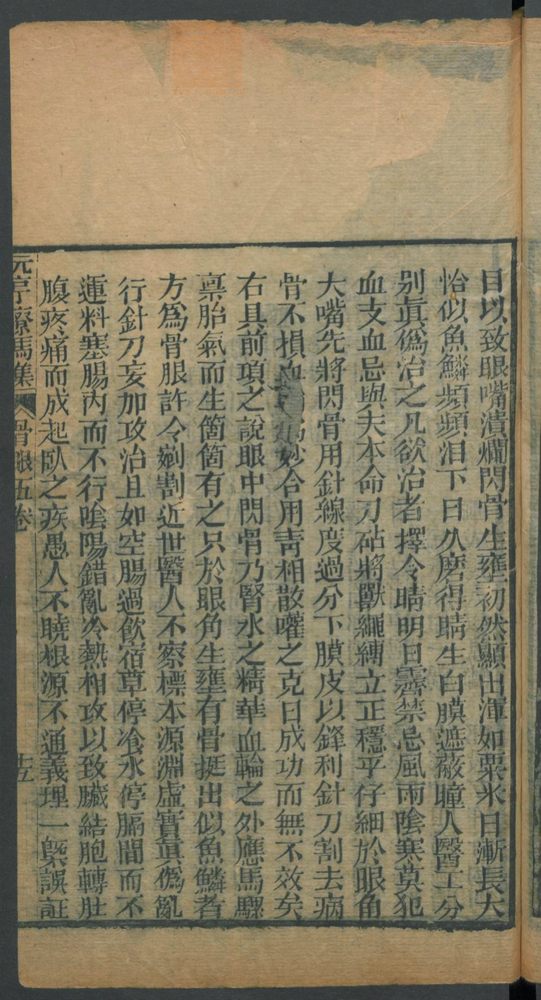 日以致眼嘴潰爛閃骨生壅初然顯出渾如粟米日漸長大
恰似魚鱗頻頻泪下日久磨得睛生白膜遮蔽瞳人醫工分
别眞僞治之凡欲治者擇令晴明日霽禁忌風雨陰寒莫犯
血支血忌與夫本命刀砧將獸繩縛立正穩平仔細於眼角
大嘴先將閃骨用針線度過分下膜皮以鋒利針刀割去病
骨不損血爲妙合用靑相散嚾之克日成功而無不效矣
右具前項之說眼中閃骨乃腎水之精華血輪之外應馬騾
禀胎氣而生箇箇有之只於眼角生壅有骨挺出似魚鱗者
方爲骨眼許令剜割近世醫人不察標本源淵虛實眞僞亂
行針刀妄加攻治且如空腸過飮宿草停冷水停膈間而不
運料塞腸內而不行陰陽錯亂冷熱相攻以致臟結胞轉肚
腹疼痛而成起臥之疾愚人不曉根源不通義理一槩誤証
元亨療馬集 骨眼五卷 十五